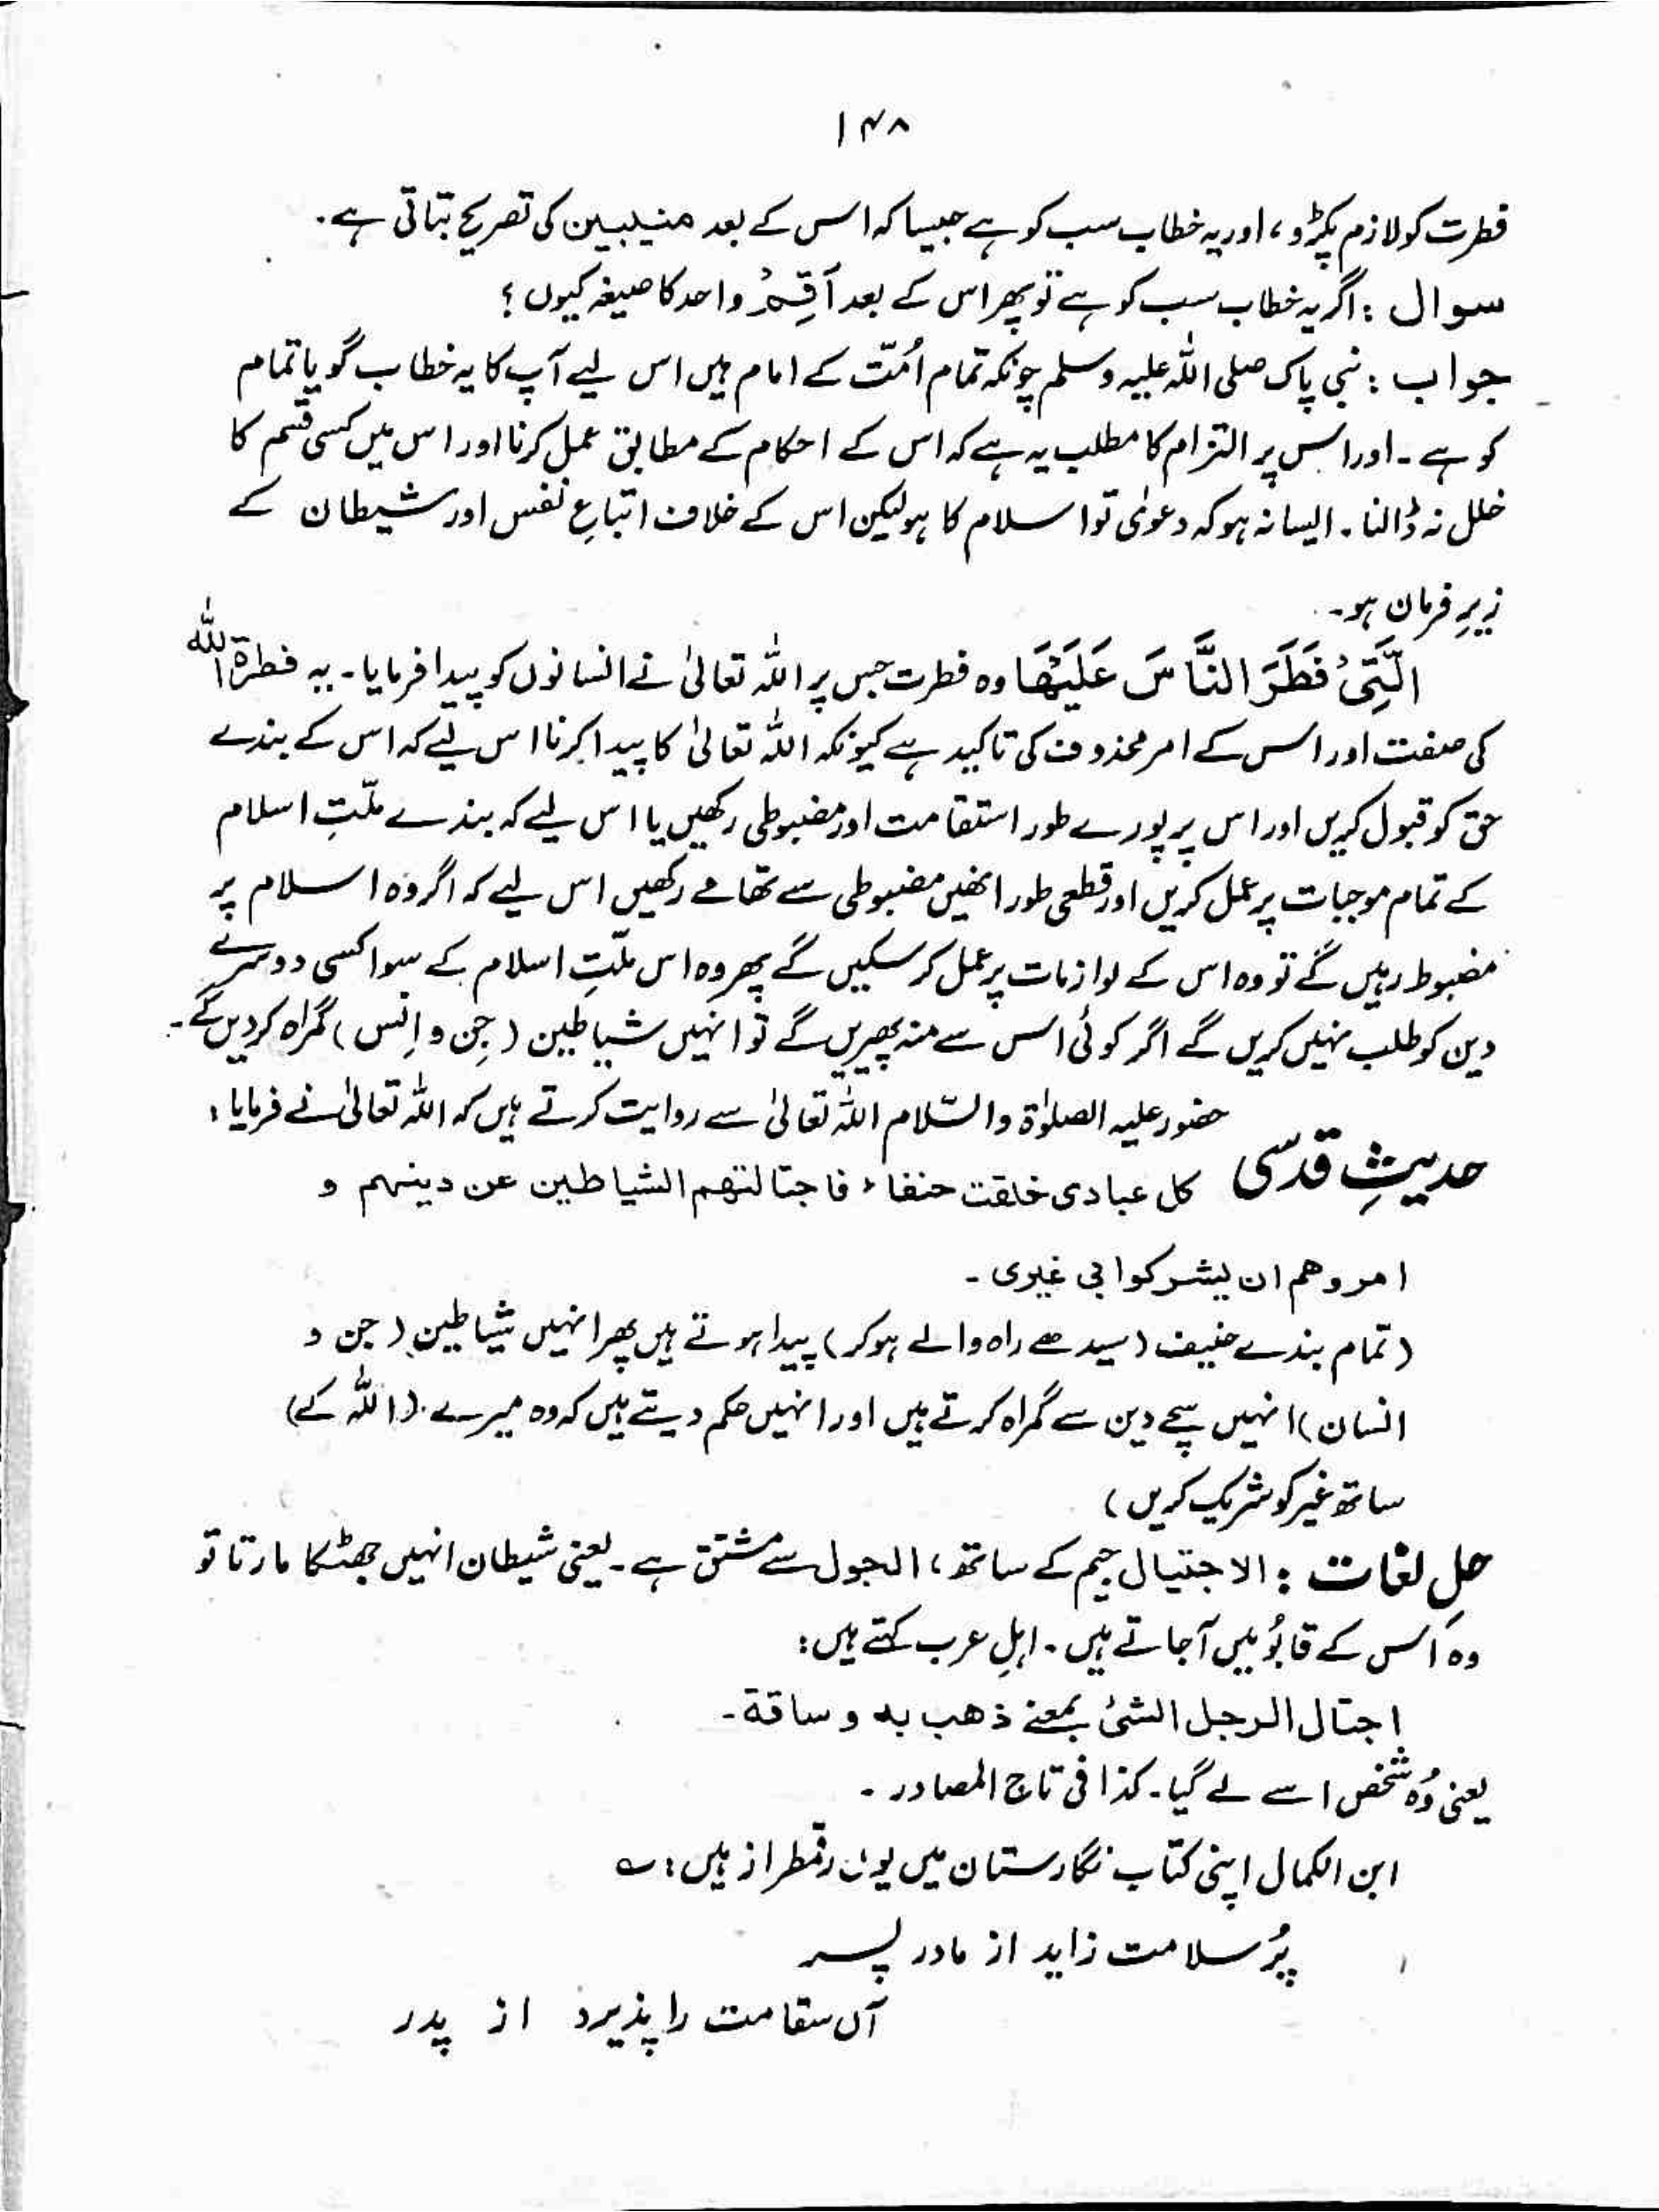 ۱۴۸
فطرت کو لازم پکڑو، اور یہ خطاب سب کو ہے جیسا کہ اس کے بعد منیبین کی تصریح بتاتی ہے۔
سوال : اگر یہ خطاب سب کو ہے تو پھر اس کے بعد أَقِمْ واحد کا صیغہ کیوں ؟
جواب : نبی پاک صلی اللہ علیہ وسلم چونکہ تمام اُمّت کے امام ہیں اس لیے آپ کا یہ خطاب گویا تمام
کو ہے ۔ اور اس پر التزام کا مطلب یہ ہے کہ اس کے احکام کے مطابق عمل کرنا اور اس میں کسی قسم کا
خلل نہ ڈالنا ۔ ایسا نہ ہو کہ دعویٰ تو اسلام کا ہو لیکن اس کے خلاف اتباعِ نفس اور شیطان کے
زیرِ فرمان ہو ۔
الَّتِیْ فَطَرَ النَّاسَ عَلَیْهَا وہ فطرت جس پر اللہ تعالیٰ نے انسانوں کو پیدا فرمایا ۔ یہ فطرۃ اللہ
کی صفت اور اس کے امر محذوف کی تاکید ہے کیونکہ اللہ تعالیٰ کا پیدا کرنا اس لیے کہ اس کے بندے
حق کو قبول کریں اور اس پر پورے طور استقامت اور مضبوطی رکھیں یا اس لیے کہ بندے ملّتِ اسلام
کے تمام موجبات پر عمل کریں اور قطعی طور انھیں مضبوطی سے تھامے رکھیں اس لیے کہ اگر وہ اسلام پر
مضبوط رہیں گے تو وہ اس کے لوازمات پر عمل کر سکیں گے پھر وہ اس ملّتِ اسلام کے سوا کسی دوسرے
دین کو طلب نہیں کریں گے اگر کوئی اس سے منہ پھیریں گے تو انہیں شیاطین (جِن و اِنس) گمراہ کردیں گے۔
حضور علیہ الصلوٰۃ والسّلام اللہ تعالیٰ سے روایت کرتے ہیں کہ اللہ تعالیٰ نے فرمایا :
حدیثِ قدسی کل عبادی خلقت حنفاء فاجتالتهم الشیاطین عن دینهم و
امروهم ان یشرکوا بی غیری ۔
(تمام بندے حنیف (سیدھے راہ والے ہوکر) پیدا ہوتے ہیں پھر انہیں شیاطین (جن و
انسان) انہیں سچے دین سے گمراہ کرتے ہیں اور انہیں حکم دیتے ہیں کہ وہ میرے (اللہ کے)
ساتھ غیر کو شریک کریں)
حلِ لغات : الاجتیال جیم کے ساتھ، الجول سے مشتق ہے ۔ یعنی شیطان انہیں جھٹکا مارتا تو
وہ اُس کے قابُو میں آجاتے ہیں ۔ اہلِ عرب کہتے ہیں :
اجتال الرجل الشئ بمعنے ذهب به و ساقة ۔
یعنی وُہ شخص اسے لے گیا ۔ کذا فی تاج المصادر ۔
ابن الکمال اپنی کتاب نگارستان میں یوں رقمطراز ہیں : ؎
پُر سلامت زاید از مادر پسر
آں سقامت را پذیرد از پدر